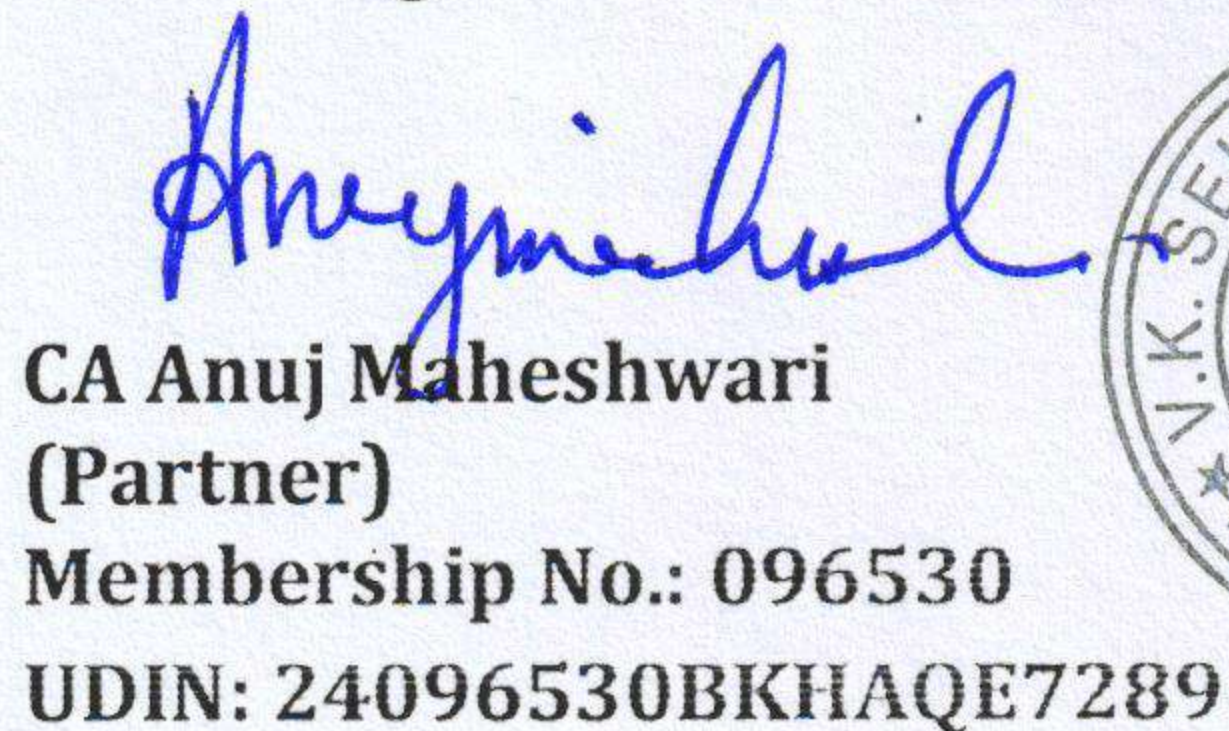 CA Anuj Maheshwari
(Partner)
Membership No.: 096530
UDIN: 24096530BKHAQE7289
★ V.K. SE